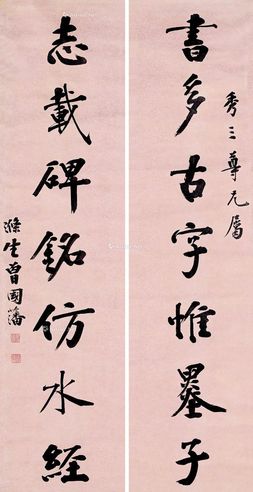 書多古字惟墨子
秀三尊兄屬
志載碑銘仿水經
滌生曾國藩